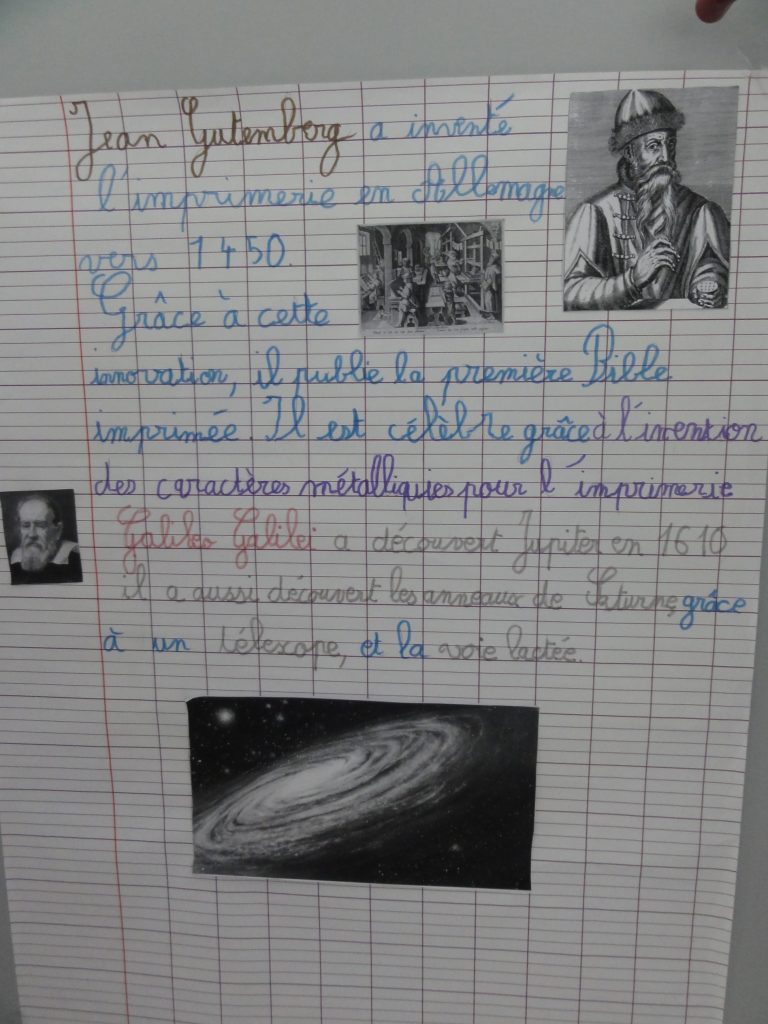 Jean Gutemberg a inventé
l'imprimerie en Allemagne
vers 1450.
Grâce à cette
innovation, il publie la première Bible
imprimée. Il est célèbre grâce à l'invention
des caractères métalliques pour l'imprimerie
Galileo Galilei a découvert Jupiter en 1610
il a aussi découvert les anneaux de Saturne grâce
à un télexope, et la voie lactée.